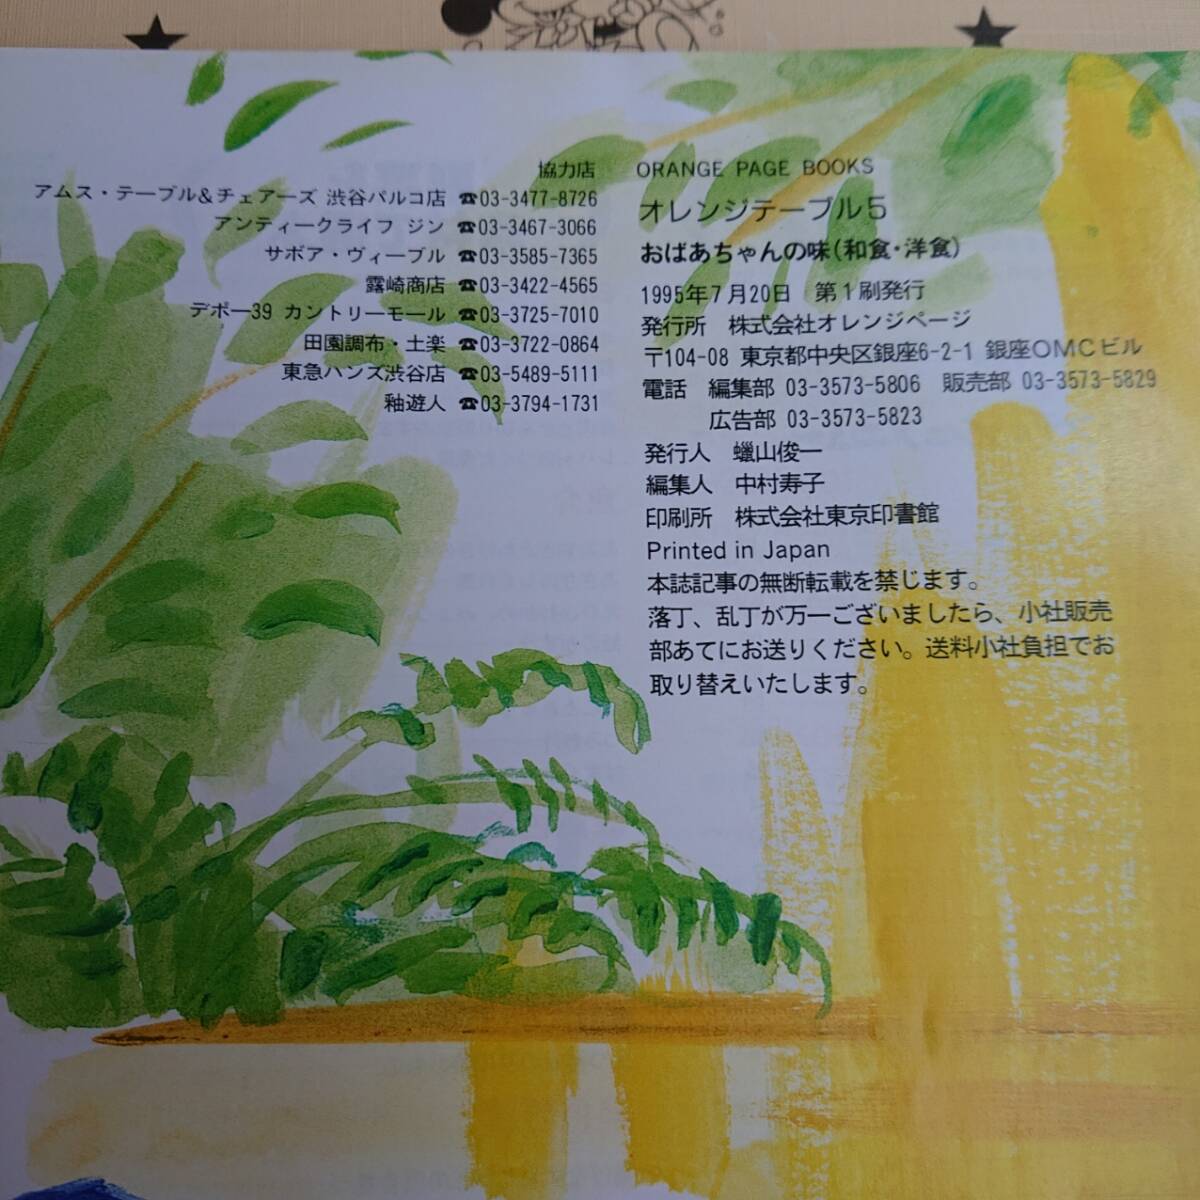 協力店
アムス・テーブル&チェアーズ 渋谷パルコ店 ☎03-3477-8726
アンティークライフ ジン ☎03-3467-3066
サボア・ヴィーブル ☎03-3585-7365
露崎商店 ☎03-3422-4565
デポー39 カントリーモール ☎03-3725-7010
田園調布・土楽 ☎03-3722-0864
東急ハンズ渋谷店 ☎03-5489-5111
釉遊人 ☎03-3794-1731
ORANGE PAGE BOOKS
オレンジテーブル5
おばあちゃんの味(和食・洋食)
1995年7月20日 第1刷発行
発行所 株式会社オレンジページ
〒104-08 東京都中央区銀座6-2-1 銀座OMCビル
電話 編集部 03-3573-5806 販売部 03-3573-5829
広告部 03-3573-5823
発行人 蠟山俊一
編集人 中村寿子
印刷所 株式会社東京印書館
Printed in Japan
本誌記事の無断転載を禁じます。
落丁、乱丁が万一ございましたら、小社販売
部あてにお送りください。送料小社負担でお
取り替えいたします。